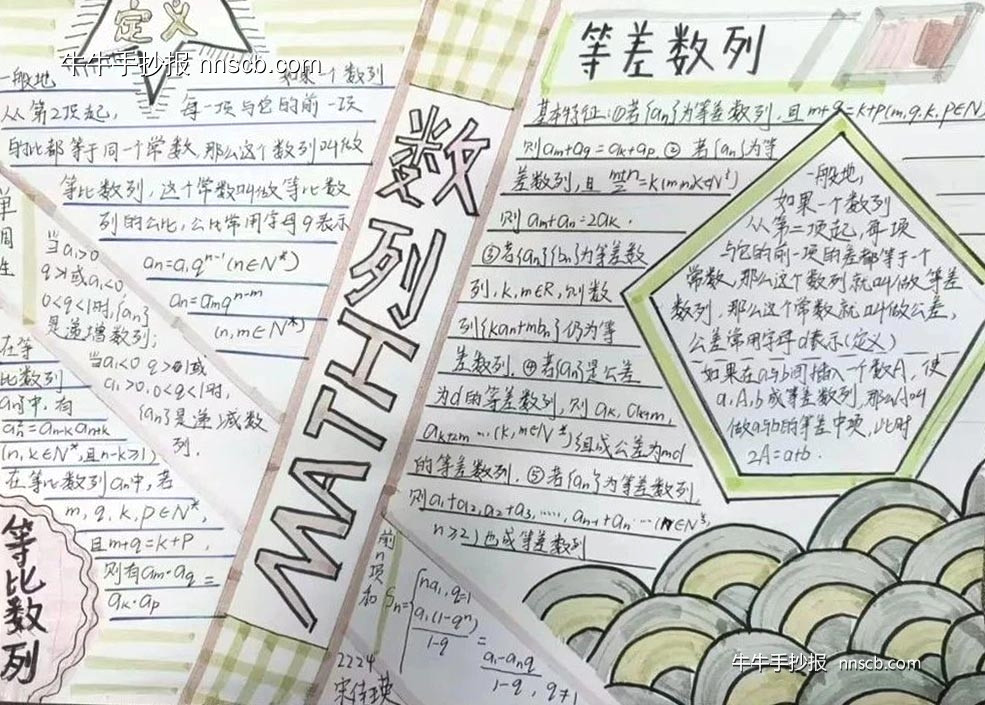 定义
牛牛手抄报 nnscb.com
一般地 如果一个数列
从第2项起, 每一项与它的前一项
的比都等于同一个常数,那么这个数列叫做
等比数列,这个常数叫做等比数
列的公比,公比常用字母q表示
an=a₁qⁿ⁻¹(n∈N*)
an=amqⁿ⁻ᵐ
(n,m∈N*)
单
调
性
当a₁>0
q>1或a₁<0
0<q<1时,{an}
是递增数列;
当a₁<0 q>1或
a₁>0,0<q<1时,
{an}是递减数
列.
在等
比数列
an中,有
an²=an-k an+k
(n,k∈N*,且n-k≥1)
在等比数列an中,若
m,q,k,p∈N*,
且m+q=k+p,
则有am·aq=
ak·ap
等比数列
数列MATH
前n项和
Sn={na₁,q=1
a₁(1-qⁿ)
1-q
=
a₁-anq
1-q,q≠1
2224
等差数列
基本特征:①若{an}为等差数列,且m+q=k+p(m,q,k,p∈N
则am+aq=ak+ap.② 若{an}为等
差数列,且 m+n/2=k(m,n,k∈N*)
则am+an=2ak.
③若{an}{bn}为等差数
列,k,m∈R,则数
列{kan+mbn}仍为等
差数列.④若{an}是公差
为d的等差数列,则ak,ak+m,
ak+2m…(k,m∈N*)组成公差为md
的等差数列.⑤若{an}为等差数列,
则a₁+a₂,a₂+a₃,……,an-1+an…(n∈N*,
n≥2)也成等差数列
一般地,
如果一个数列
从第二项起,每一项
与它的前一项的差都等于一个
常数,那么这个数列就叫做等差
数列,那么这个常数就叫做公差,
公差常用字母d表示(定义)
如果在a与b间插入一个数A,使
a,A,b成等差数列,那么A叫
做a与b的等差中项,此时
2A=a+b.
牛牛手抄报 nnscb.com